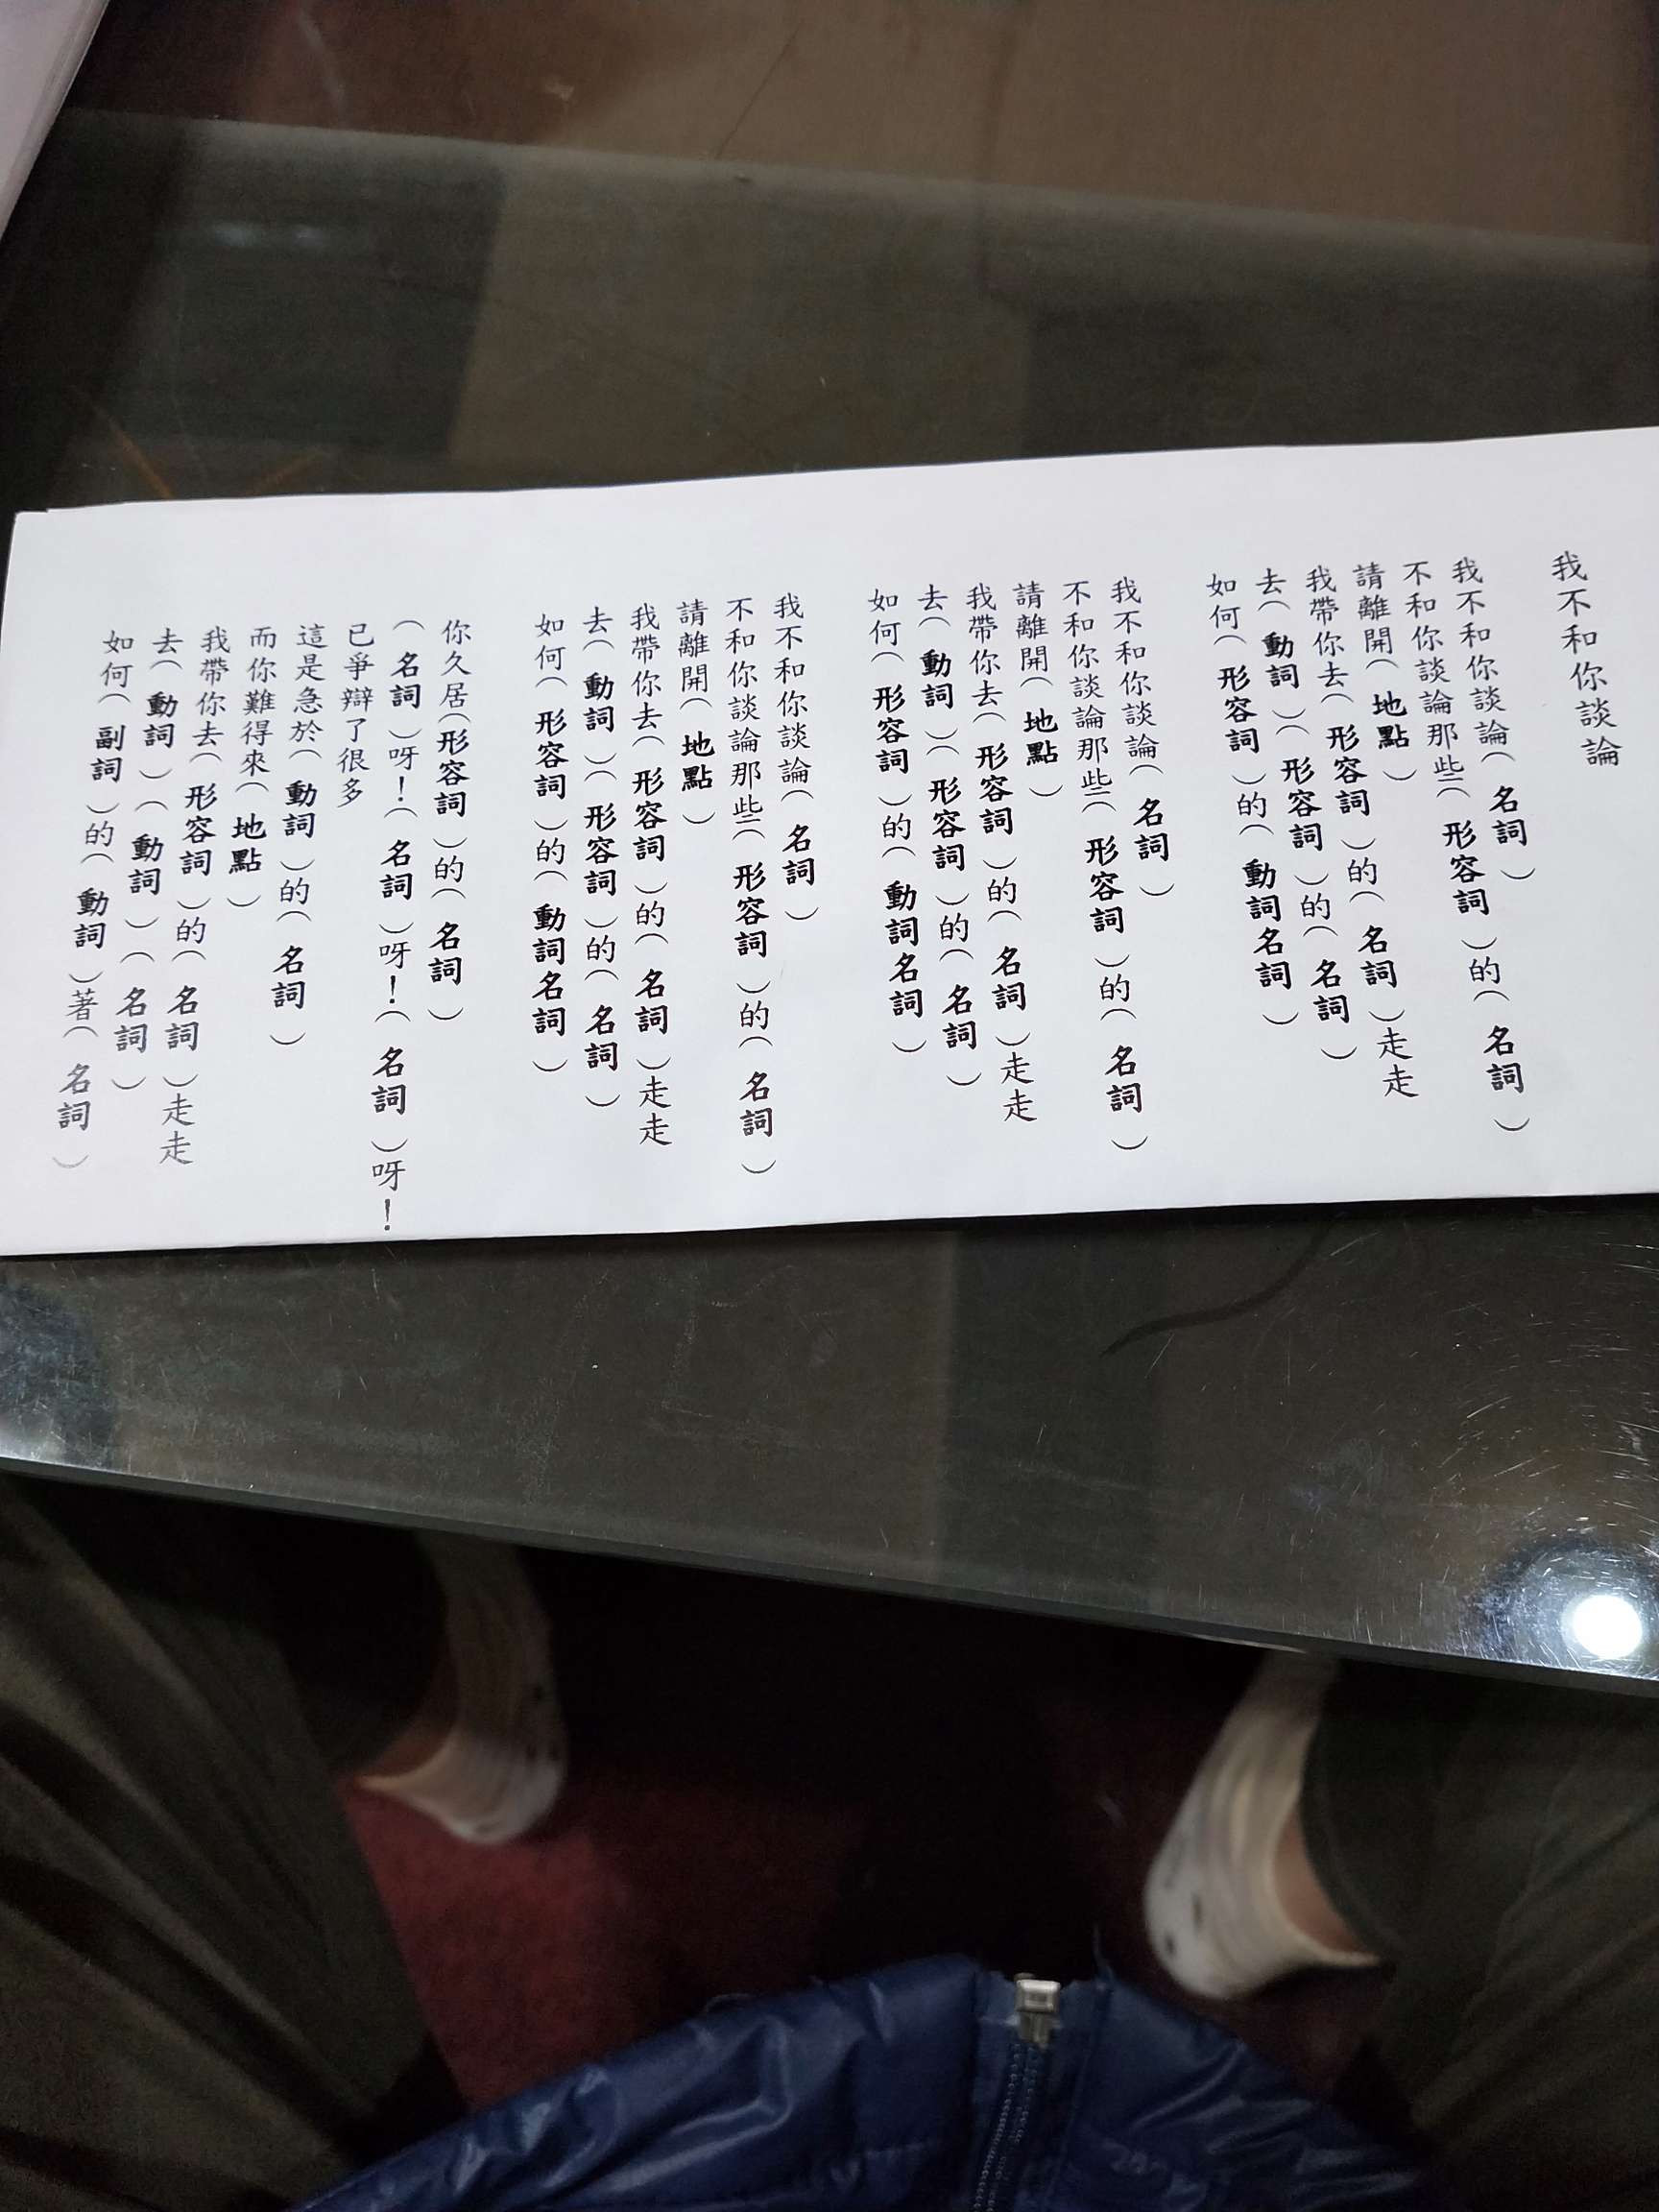 我不和你談論
我不和你談論（名詞）
不和你談論那些（形容詞）的（名詞）
請離開（地點）
我帶你去（形容詞）的（名詞）走走
去（動詞）（形容詞）的（名詞）
如何（形容詞）的（動詞名詞）
我不和你談論（名詞）
不和你談論那些（形容詞）的（名詞）
請離開（地點）
我帶你去（形容詞）的（名詞）走走
去（動詞）（形容詞）的（名詞）
如何（形容詞）的（動詞名詞）
我不和你談論（名詞）
不和你談論那些（形容詞）的（名詞）
請離開（地點）
我帶你去（形容詞）的（名詞）走走
去（動詞）（形容詞）的（名詞）
如何（形容詞）的（動詞名詞）
你久居（形容詞）的（名詞）
（名詞）呀！（名詞）呀！（名詞）呀！
已爭辯了很多
這是急於（動詞）的（名詞）
而你難得來（地點）
我帶你去（形容詞）的（名詞）走走
去（動詞）（動詞）（名詞）
如何（副詞）的（動詞）著（名詞）